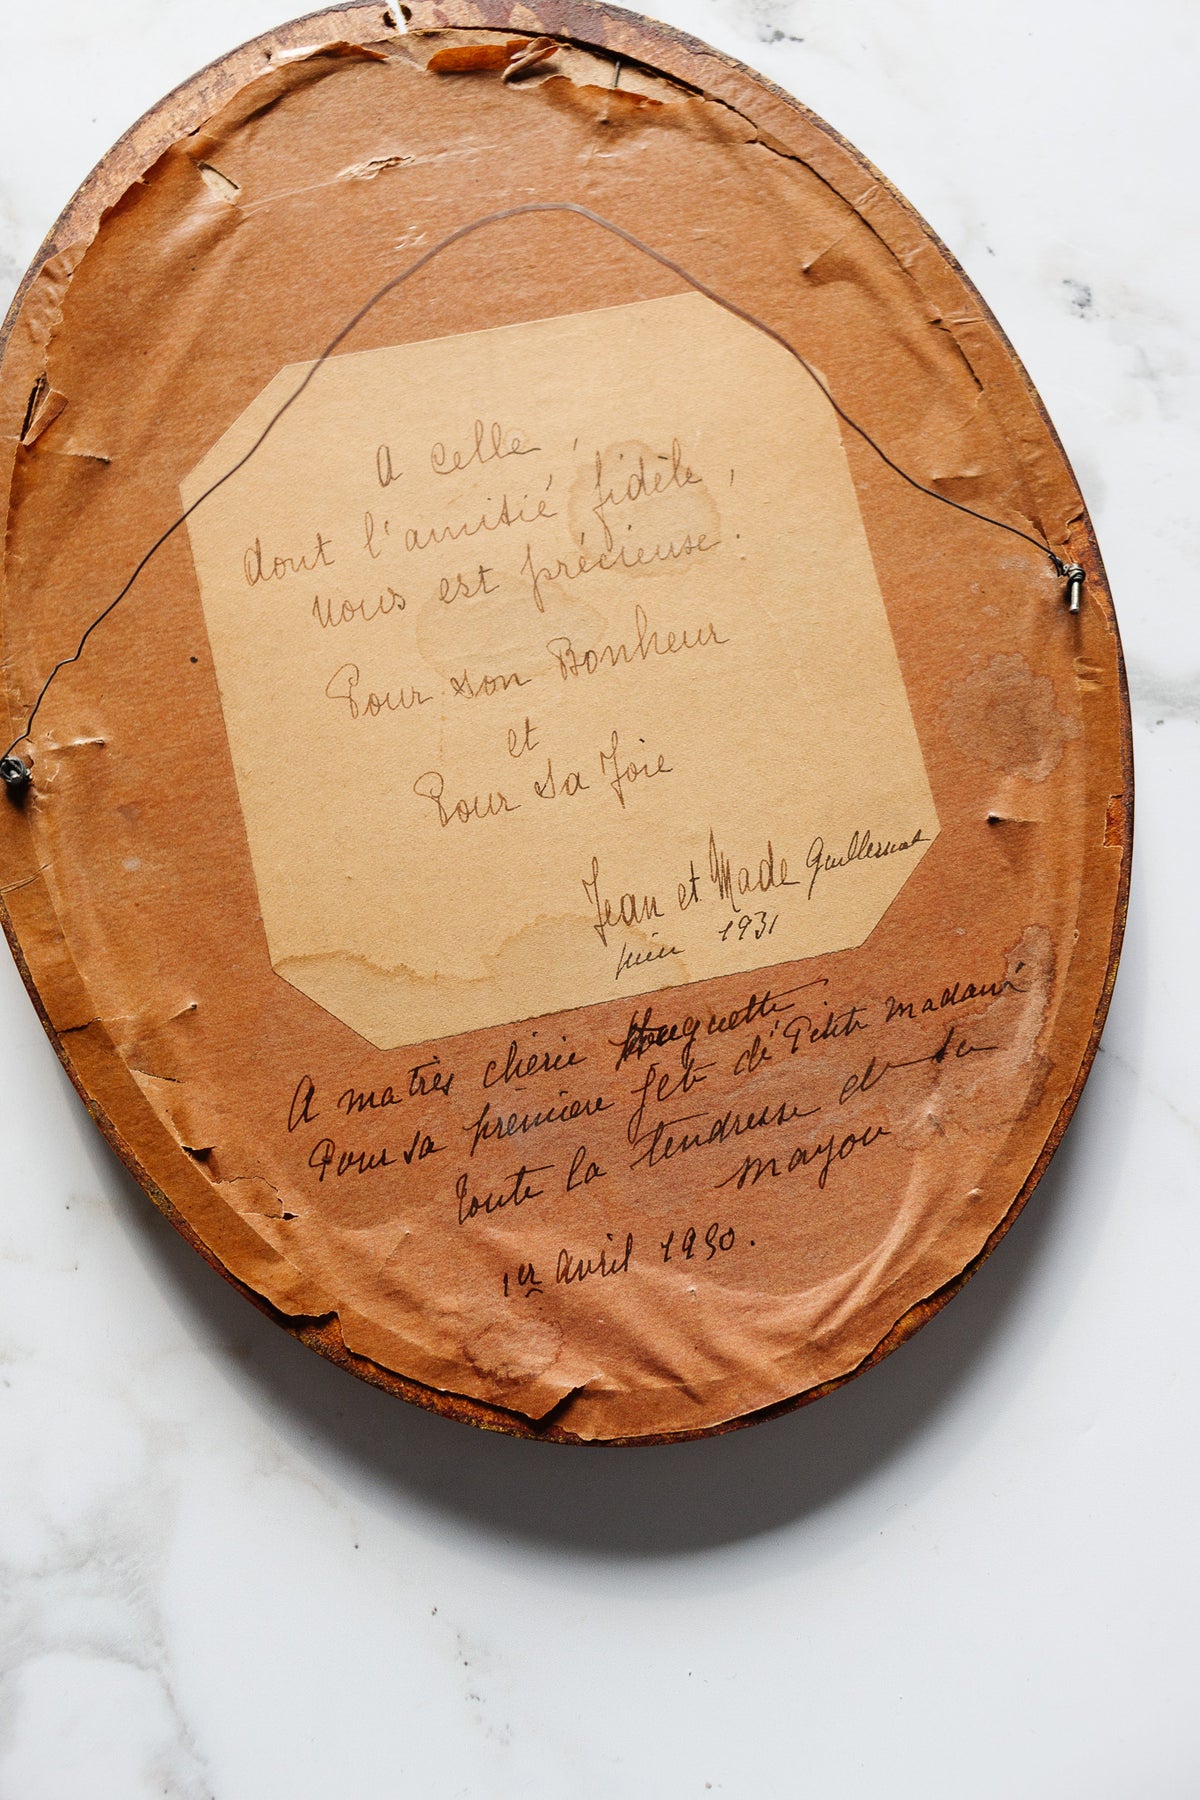 A celle,
dont l'amitié fidèle,
nous est précieuse.
Pour son Bonheur
et
Pour sa Joie
Jean et Made Guillermot
juin 1931
A ma très chérie Huguette
Pour sa première fête de Petite madame
toute la tendresse de sa
mayou
1er avril 1950.